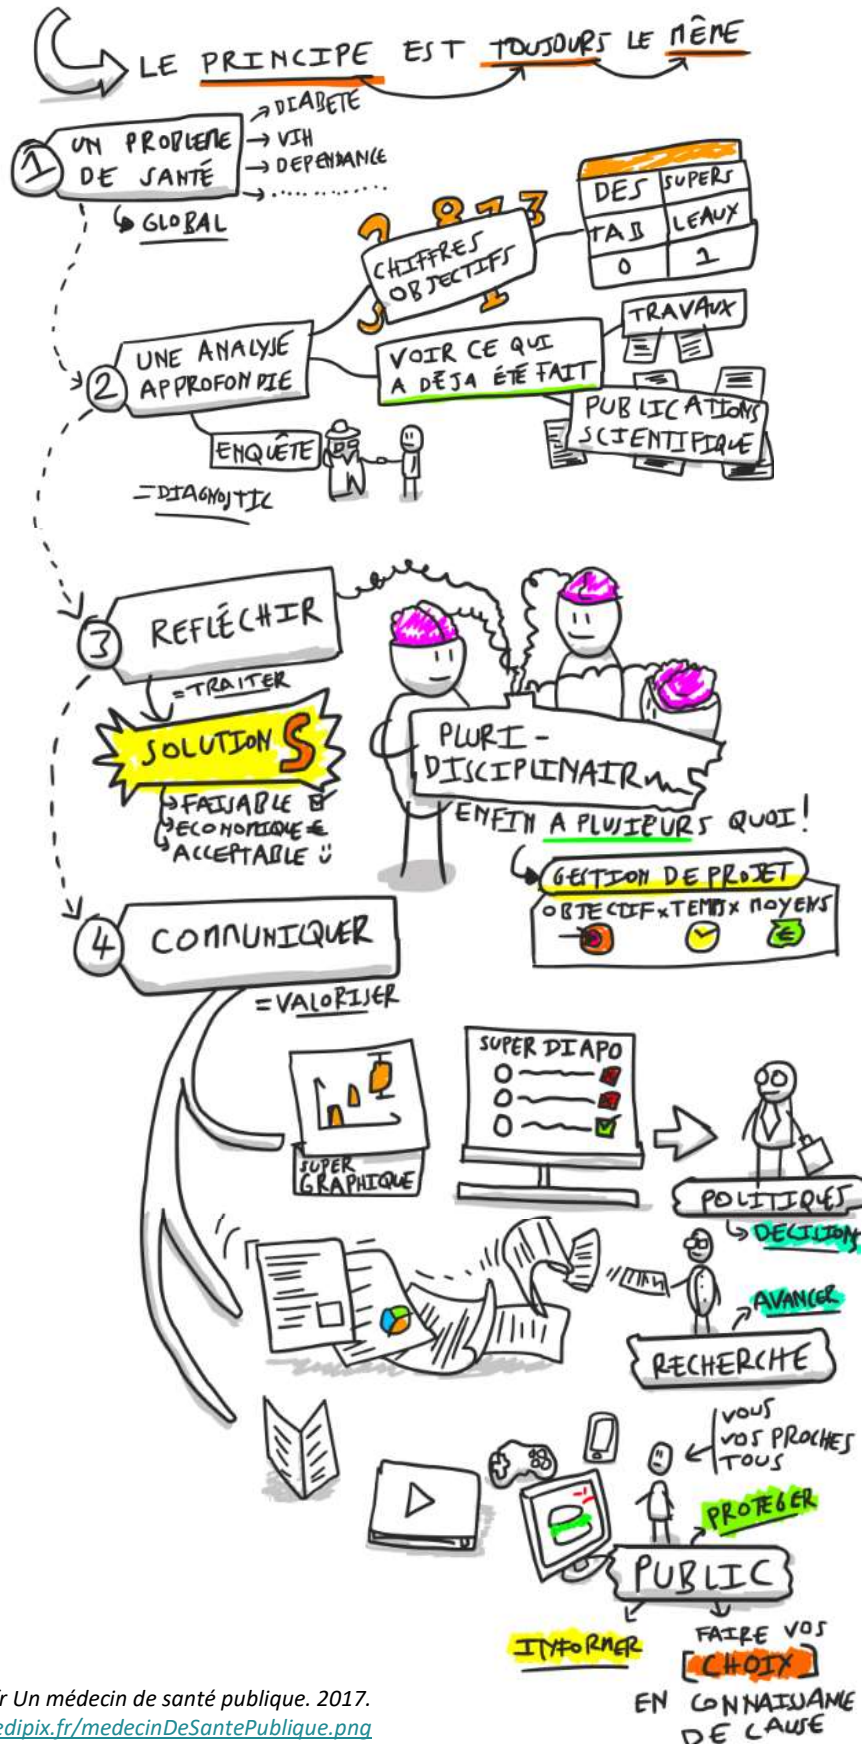 LE PRINCIPE EST TOUJOURS LE MÊME
1
UN PROBLEME
DE SANTÉ
→ DIABETE
→ VIH
→ DEPENDANCE
→ ..........
GLOBAL
2
UNE ANALYSE
APPROFONDIE
CHIFFRES
OBJECTIFS
DES SUPERS
TAB LEAUX
0 1
VOIR CE QUI
A DÉJA ÉTÉ FAIT
TRAVAUX
PUBLICATIONS
SCIENTIFIQUE
ENQUÊTE
= DIAGNOSTIC
3
REFLÉCHIR
= TRAITER
SOLUTION S
FAISABLE
ECONOMIQUE €
ACCEPTABLE
PLURI-
DISCIPLINAIR
ENFIN A PLUSIEURS QUOI!
GESTION DE PROJET
OBJECTIF x TEMPS x MOYENS
€
4
COMMUNIQUER
= VALORISER
SUPER
GRAPHIQUE
SUPER DIAPO
POLITIQUES
DECISIONS
AVANCER
RECHERCHE
VOUS
VOS PROCHES
TOUS
PROTEGER
PUBLIC
INFORMER
FAIRE VOS
[CHOIX]
EN CONNAISSANCE
DE CAUSE
r Un médecin de santé publique. 2017.
edipix.fr/medecinDeSantePublique.png